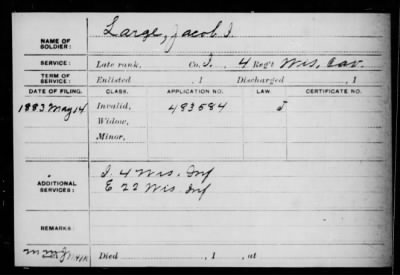 NAME OF SOLDIER: Large, Jacob I.
SERVICE: Late rank, Co. I, 4 Reg't Wis. Cav.
TERM OF SERVICE: Enlisted , 1 Discharged , 1
DATE OF FILING. CLASS. APPLICATION NO. LAW. CERTIFICATE NO.
1883 May 14 Invalid, 483584 J
Widow,
Minor,
ADDITIONAL SERVICES: I. 4 Wis. Inf
E 22 Wis Inf
REMARKS:
Died , 1 , at